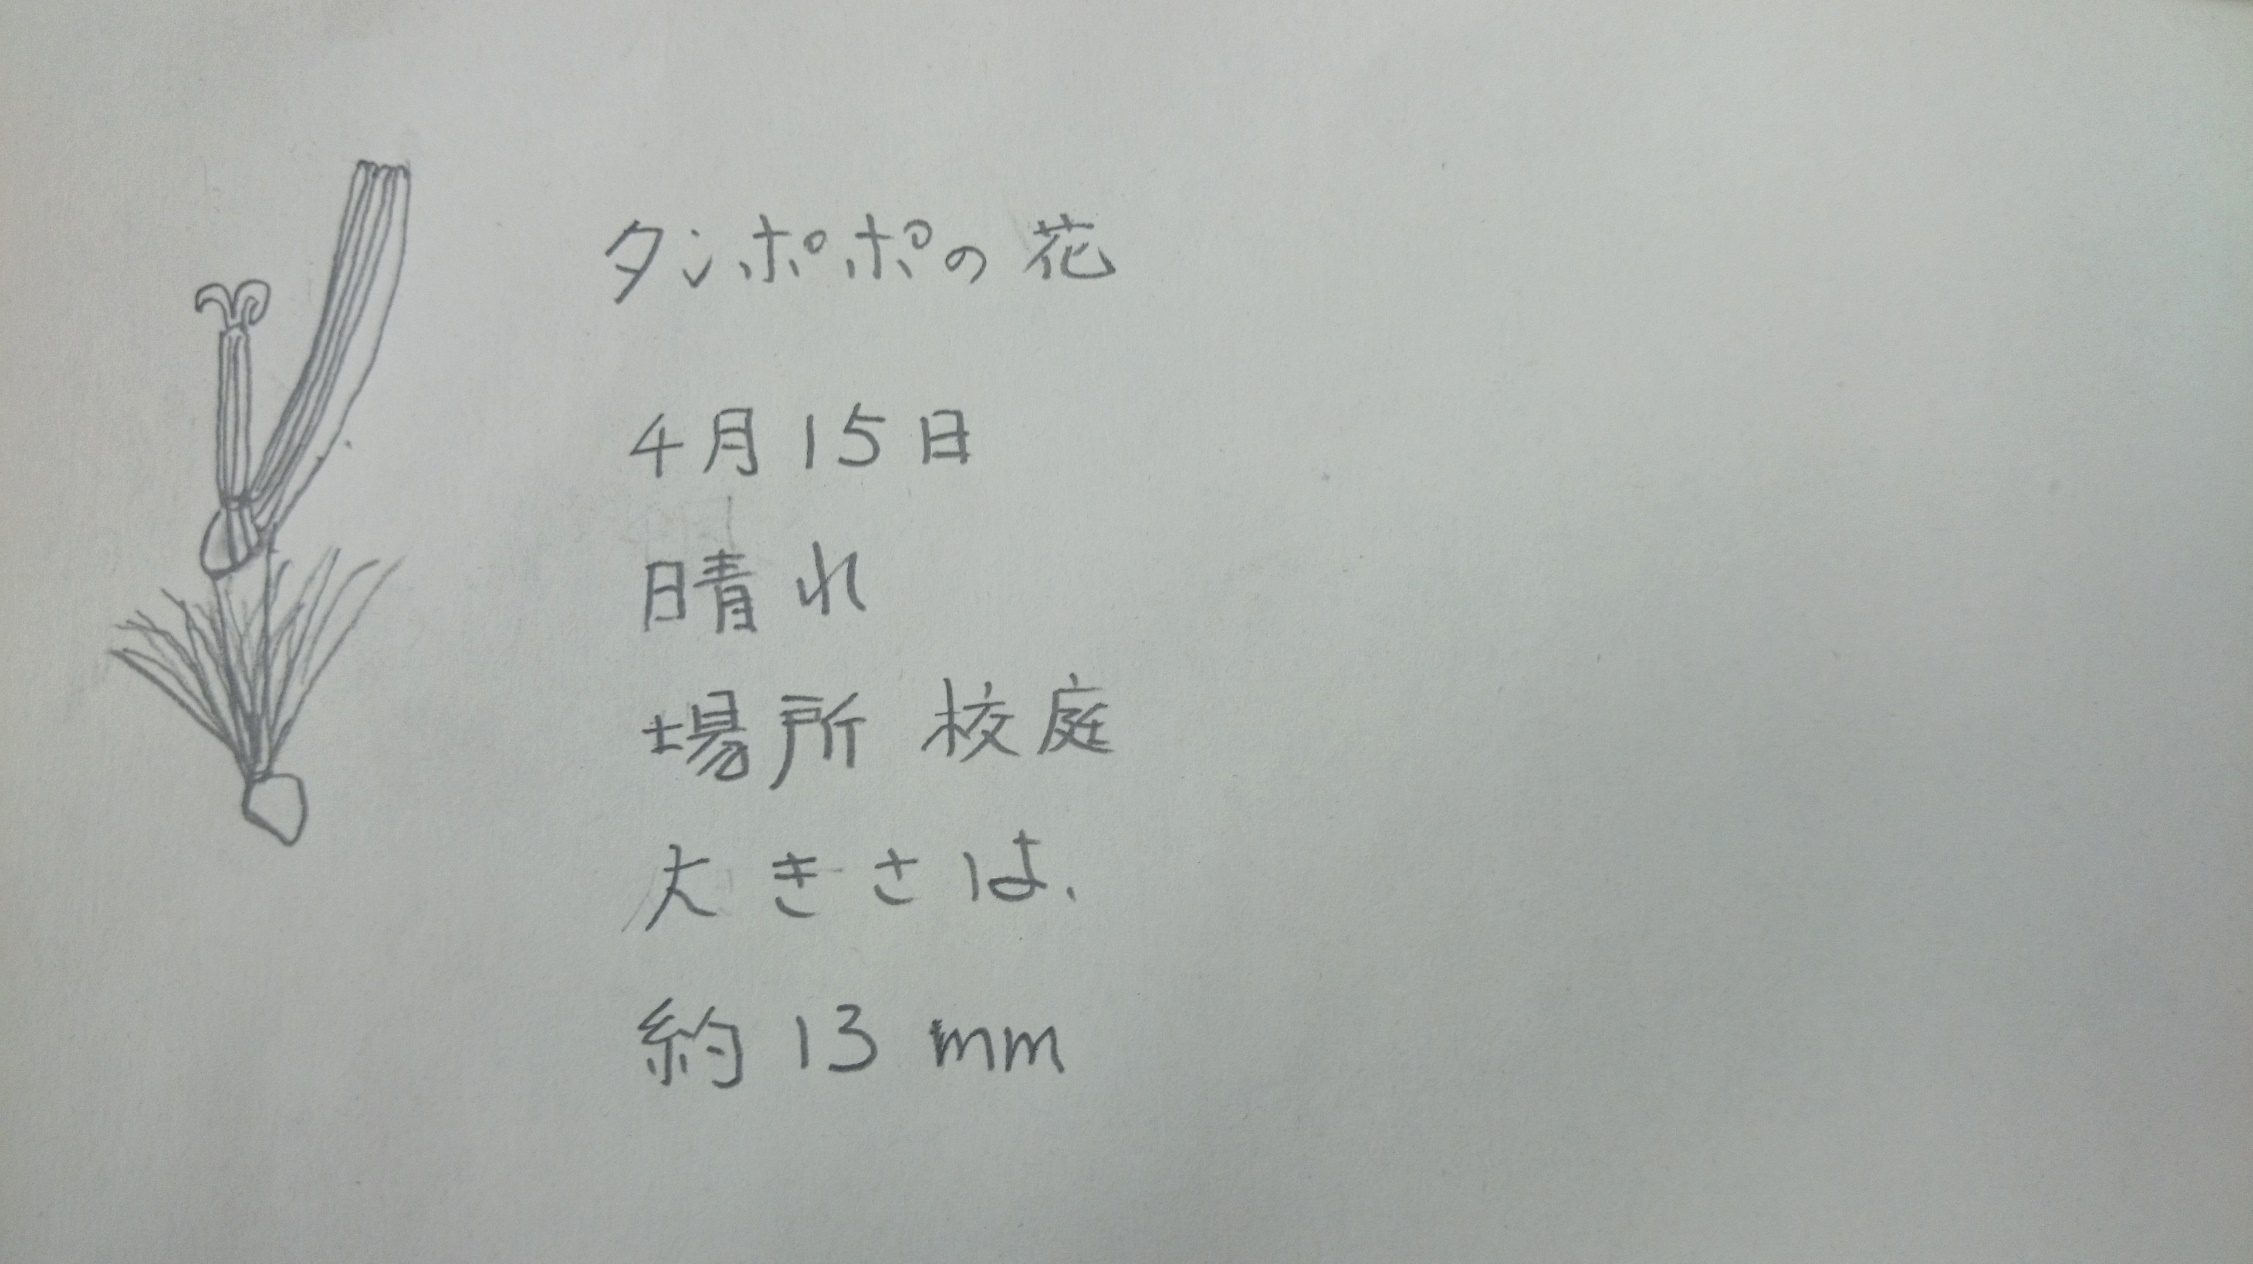 タンポポの花
4月15日
晴れ
場所 校庭
大きさは、
約13mm